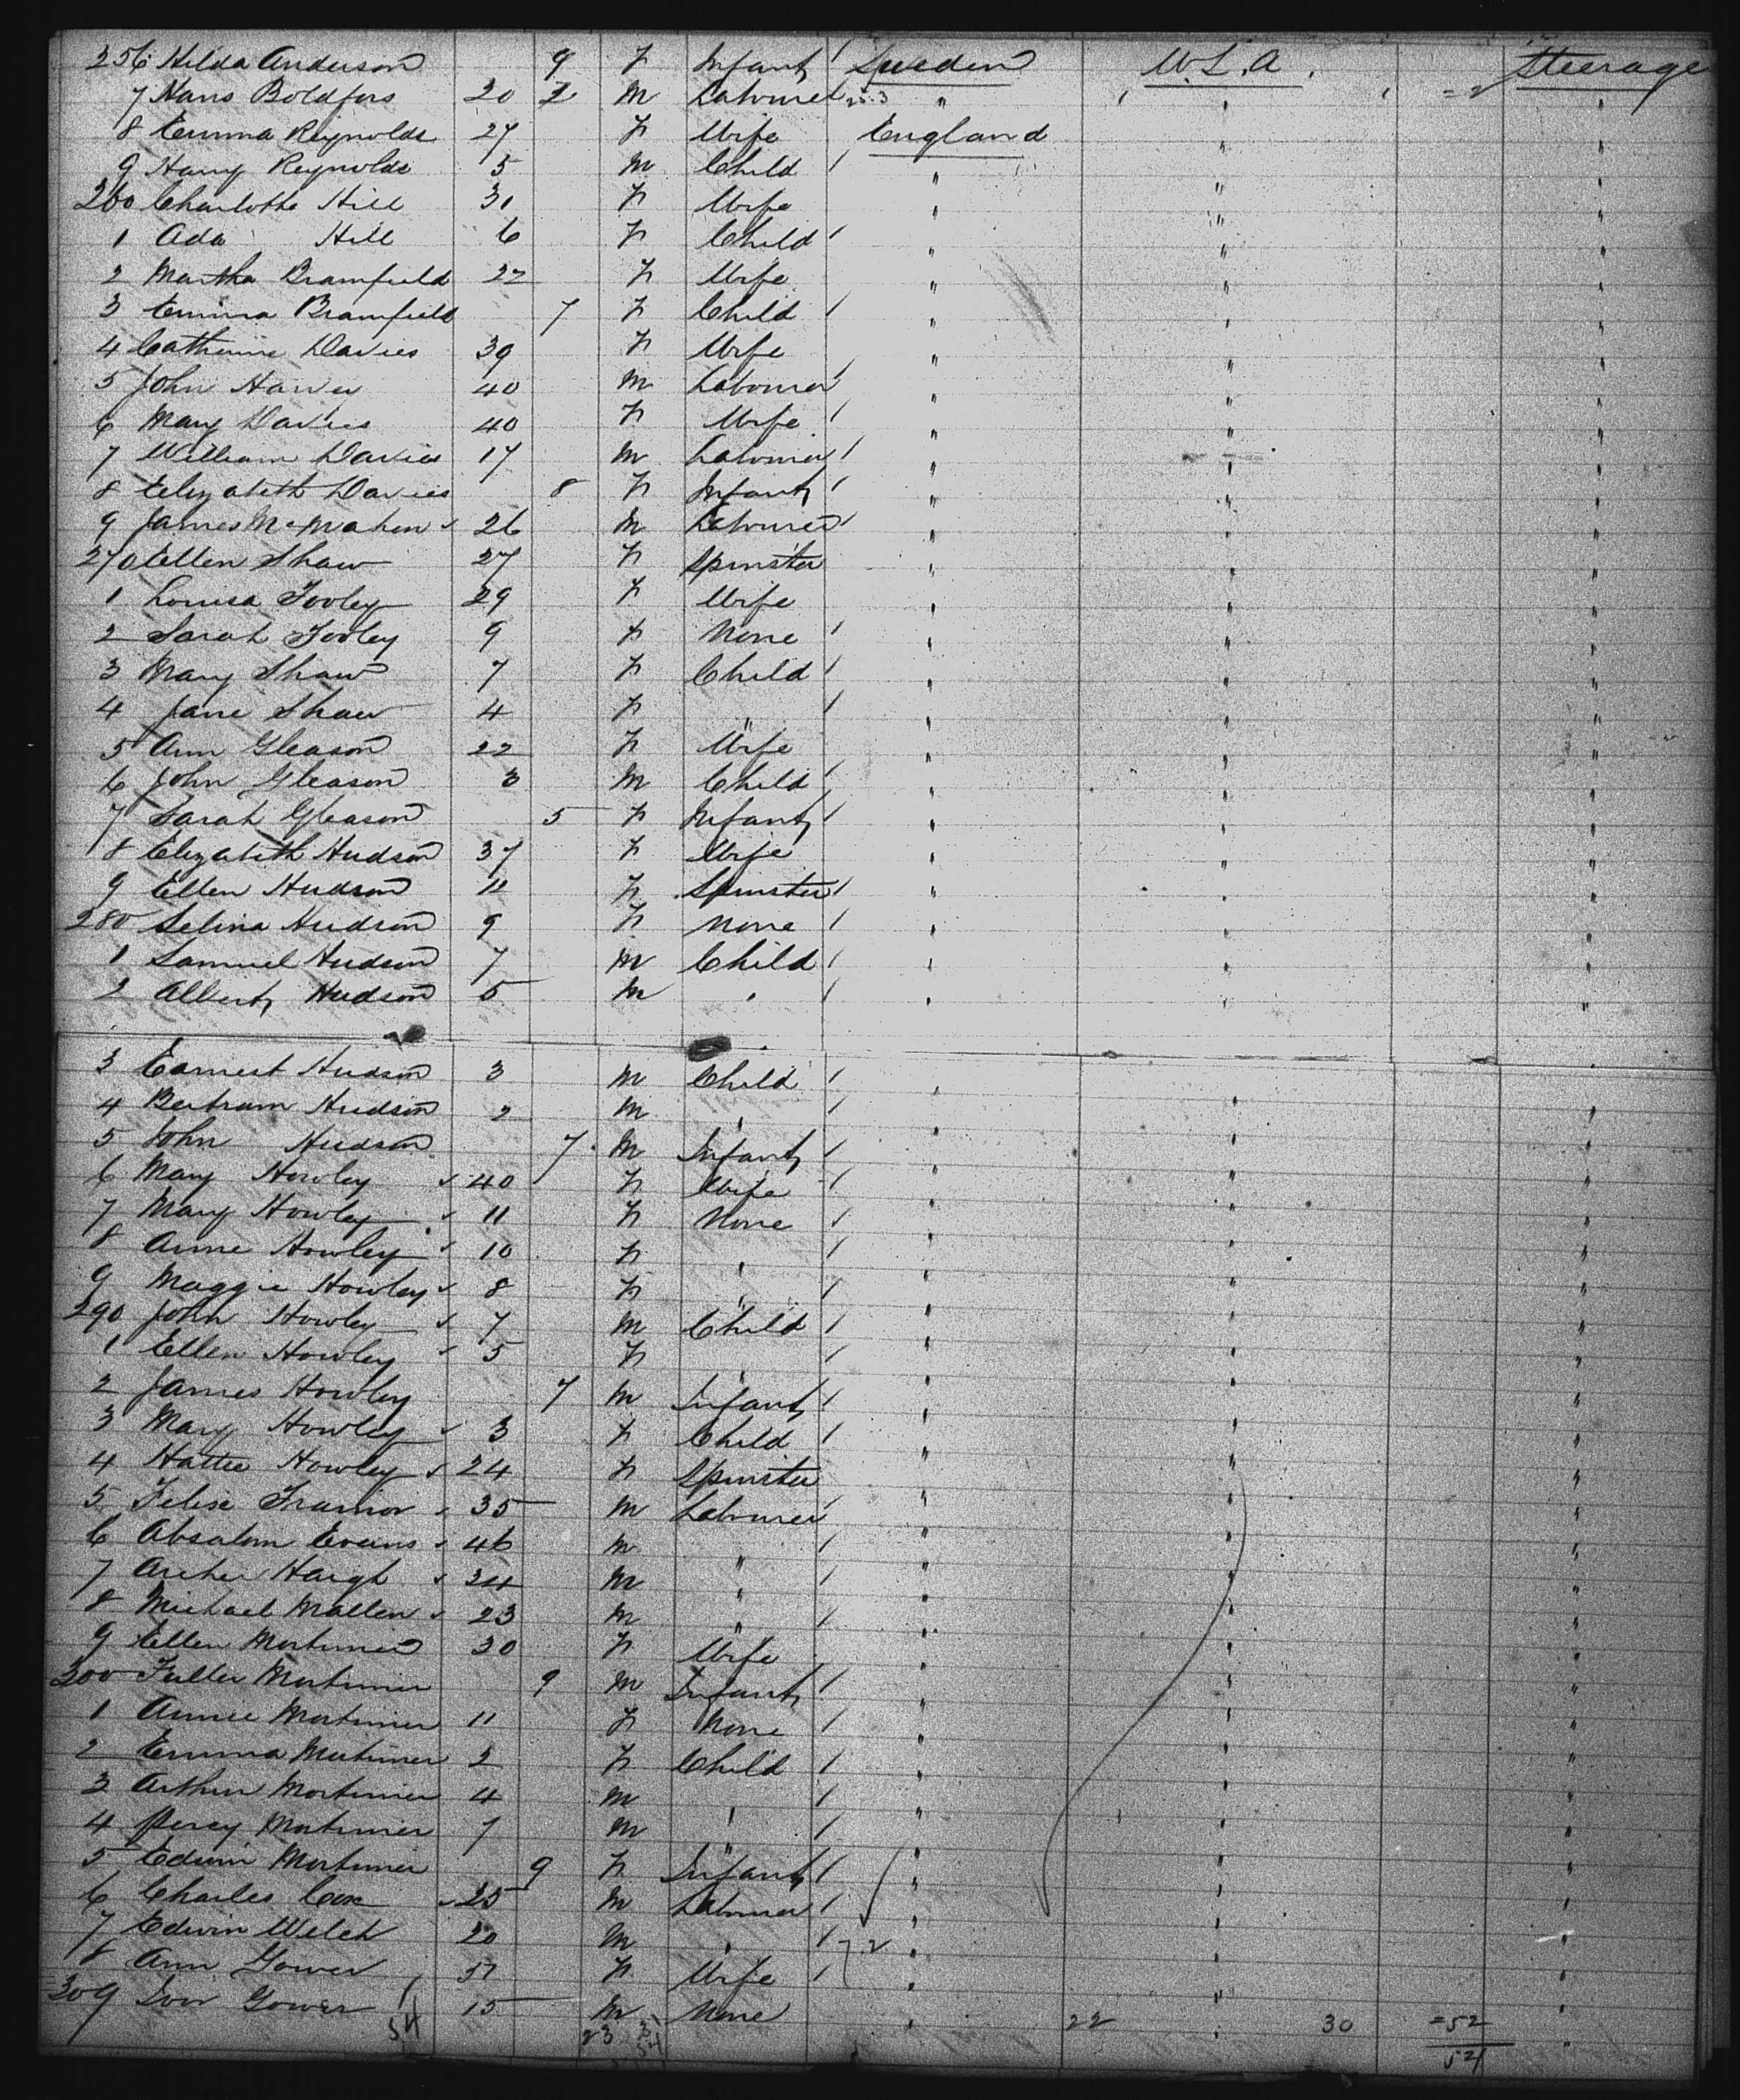 256 Hilda Anderson 9 F Infant Sweden U.S.A. Steerage
7 Hans 20 M Labourer " " = 2 "
8 Emma Reynolds 27 F Wife England " "
9 Harry Reynolds 5 M Child " " "
260 Charlotte Hill 31 F Wife " " "
1 Ada Hill 6 F Child " " "
2 Martha Bramfield 22 F Wife " " "
3 Emma Bramfield 7 F Child " " "
4 Catherine Davies 39 F Wife " " "
5 John 40 M Labourer " " "
6 Mary Davies 40 F Wife " " "
7 William Davies 17 M Labourer " " "
8 Elizabeth Davies 8 F Infant " " "
9 James McMahon 26 M Labourer " " "
270 Ellen Shaw 27 F Spinster " " "
1 Louisa Tooley 29 F Wife " " "
2 Sarah Tooley 9 F None " " "
3 Mary Shaw 7 F Child " " "
4 Jane Shaw 4 F " " " "
5 Ann Gleason 22 F Wife " " "
6 John Gleason 3 M Child " " "
7 Sarah Gleason 5 F Infant " " "
8 Elizabeth Hudson 37 F Wife " " "
9 Ellen Hudson 12 F Spinster " " "
280 Selina Hudson 9 F None " " "
1 Samuel Hudson 7 M Child " " "
2 Albert Hudson 5 M " " " "
3 Earnest Hudson 3 M Child " " "
4 Bertram Hudson 2 M " " " "
5 John Hudson 7 M Infant " " "
6 Mary Howley 40 F Wife " " "
7 Mary Howley 11 F None " " "
8 Anne Howley 10 F " " " "
9 Maggie Howley 8 F " " " "
290 John Howley 7 M Child " " "
1 Ellen Howley 5 F " " " "
2 James Howley 7 M Infant " " "
3 Mary Howley 3 F Child " " "
4 Hattie Howley 24 F Spinster " " "
5 35 M Labourer " " "
6 Absalom Evans 46 M " " " "
7 Archer Haigh 34 M " " " "
8 Michael Mallen 23 M " " " "
9 Ellen Mortimer 30 F Wife " " "
300 Fuller Mortimer 9 M Infant " " "
1 Annie Mortimer 11 F None " " "
2 Emma Mortimer 2 F Child " " "
3 Arthur Mortimer 4 M " " " "
4 Percy Mortimer 7 M " " " "
5 Edwin Mortimer 9 F Infant " " "
6 Charles Cox 25 M Labourer " " "
7 Edwin Welch 20 M " " " "
8 Ann Gower 37 F Wife " " "
309 Gower 15 M None " 22 " 30 = 52 "
54 23 31 54 54